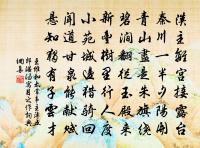 漢主離宮接露臺
秦川一半夕陽開
青山盡是朱旗繞
碧澗翻從玉殿來
新豐樹裡行人度
小苑城邊獵騎回
聞道甘泉能獻賦
懸知獨有子雲才
王維和太常韋主簿五
郎溫湯寓目之作詞典
網集